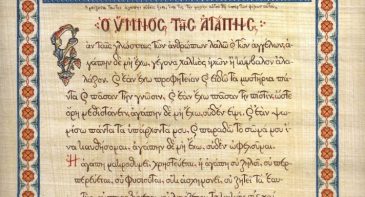 Ὁ ὝΜΝΟΣ ΤΗΣ ἈΓΆΠΗΣ
Ἐὰν ταῖς γλώσσαις τῶν ἀνθρώπων λαλῶ ϗ τῶν ἀγγέλων,
ἀγάπην δὲ μὴ ἔχω, γέγονα χαλκὸς ἠχῶν ἢ κύμβαλον ἀλα-
λάζον. ϗ ἐὰν ἔχω προφητείαν ϗ εἰδῶ τὰ μυστήρια πάν-
τα ϗ πᾶσαν τὴν γνῶσιν, ϗ ἐὰν ἔχω πᾶσαν τὴν πίστιν, ὥστε
ὄρη μεθιστάνειν, ἀγάπην δὲ μὴ ἔχω, οὐδέν εἰμι. ϗ ἐὰν ψω-
μίσω πάντα τὰ ὑπάρχοντά μου, ϗ ἐὰν παραδῶ τὸ σῶμά μου ἵ-
να καυθήσομαι, ἀγάπην δὲ μὴ ἔχω, οὐδὲν ὠφελοῦμαι.
Ἡ ἀγάπη μακροθυμεῖ, χρηστεύεται, ἡ ἀγάπη οὐ ζηλοῖ, οὐ περ-
περεύεται, οὐ φυσιοῦται, οὐκ ἀσχημονεῖ, οὐ ζητεῖ τὰ ἑαυ-